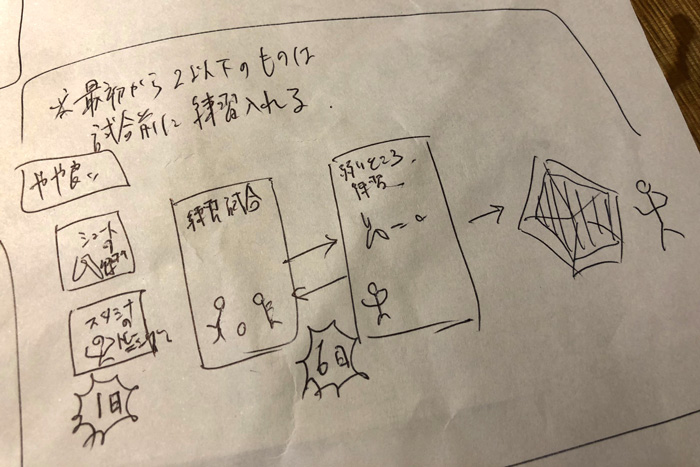 ☆最初から2以下のものは
試合前に練習入れる.
やや良い
シュート
の
練習
スタミナ
の
トレーニング
1日
練習試合
6日
弱いところ
練習